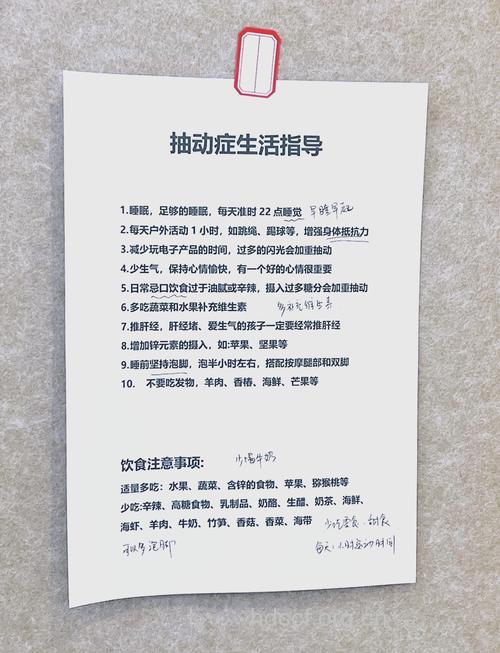 抽动症生活指导
1.睡眠，足够的睡眠，每天准时 22 点睡觉 早睡早起
2.每天户外活动 1 小时，如跳绳、踢球等，增强身体抵抗力
3.减少玩电子产品的时间，过多的闪光会加重抽动
4.少生气，保持心情愉快，有一个好的心情很重要
5.日常忌口饮食过于油腻或辛辣，摄入过多糖分会加重抽动
6.多吃蔬菜和水果补充维生素 多补充维生素
7.推肝经，肝经堵、爱生气的孩子一定要经常推肝经
8.增加锌元素的摄入，如:苹果、坚果等
9.睡前坚持泡脚，泡半小时左右，搭配按摩腿部和双脚
10. 不要吃发物，羊肉、香椿、海鲜、芒果等
饮食注意事项: 少喝牛奶
适量多吃：水果、蔬菜、含锌的食物、苹果、猕猴桃等
少吃:辛辣、高糖食物、乳制品、奶酪、生醋、奶茶、海鲜、
海虾、羊肉、牛奶、竹笋、香菇、香菜、海带 少吃零食、甜食
可以多泡脚 每天1小时运动时间